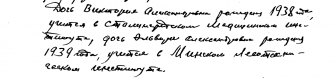 Дочь Виктория Александровна рождения 1938 года,
учится в Сталинградском медицинском ин-
ституте, дочь Эльвира Александровна рождения
1939 года, учится в Минском Лесотехни-
ческом институте.